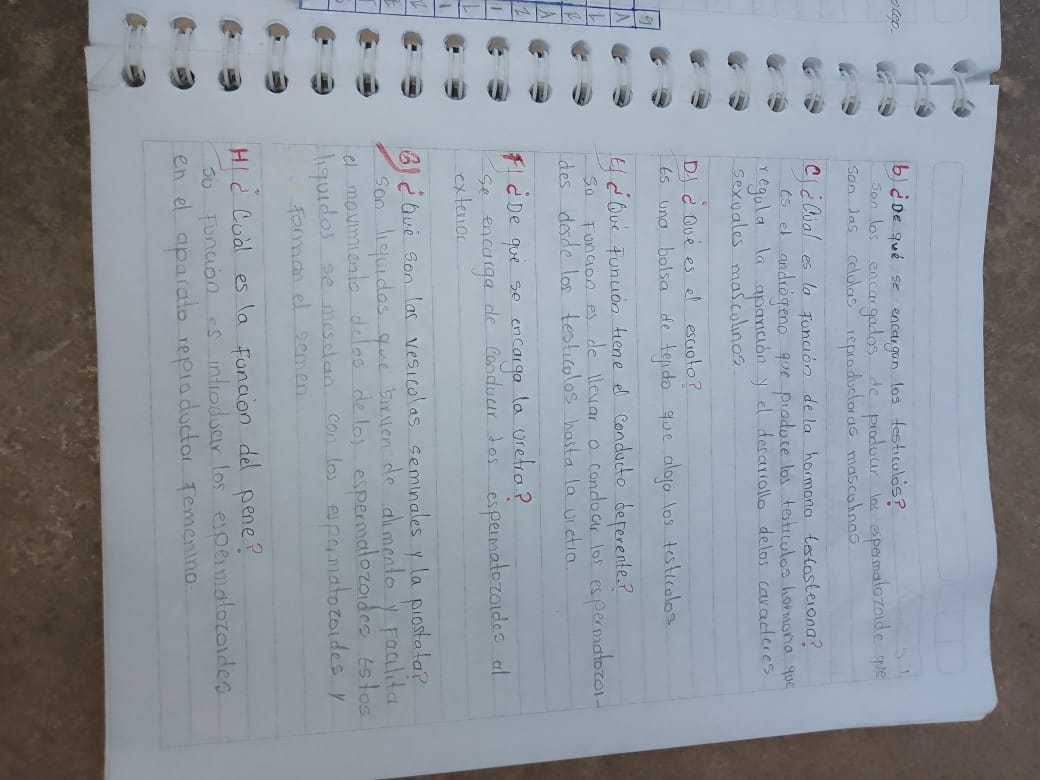 b) ¿De qué se encargan los testiculos?
son los encargados de producir los espermatozoide que
son las celulas reproductoras masculinas
C) ¿Cúal es la función de la hormona testosterona?
Es el andrógeno que produce los testiculos hormona que
regula la aparición y el desarrollo delos caracteres
sexuales masculinos
D) ¿Qué es el escroto?
Es una bolsa de tejido que aloja los testiculos
E) ¿Qué función tiene el conducto deferente?
su Funcion es de llevar o conducir los espermatozoi-
des desde los testiculos hasta la uretra
F) ¿De qué se encarga la uretra?
se encarga de conducir los espermatozoides al
exterior
G) ¿Qué son las vesiculas seminales y la prostata?
son liquidos que sirven de alimento y Facilita
el movimiento delos delos espermatozoides Estos
liquidos se mesclan con los espermatozoides y
forman el semen
H) ¿Cuál es la función del pene?
su Funcion es introducir los espermatozoides
en el aparato reproductor Femenino